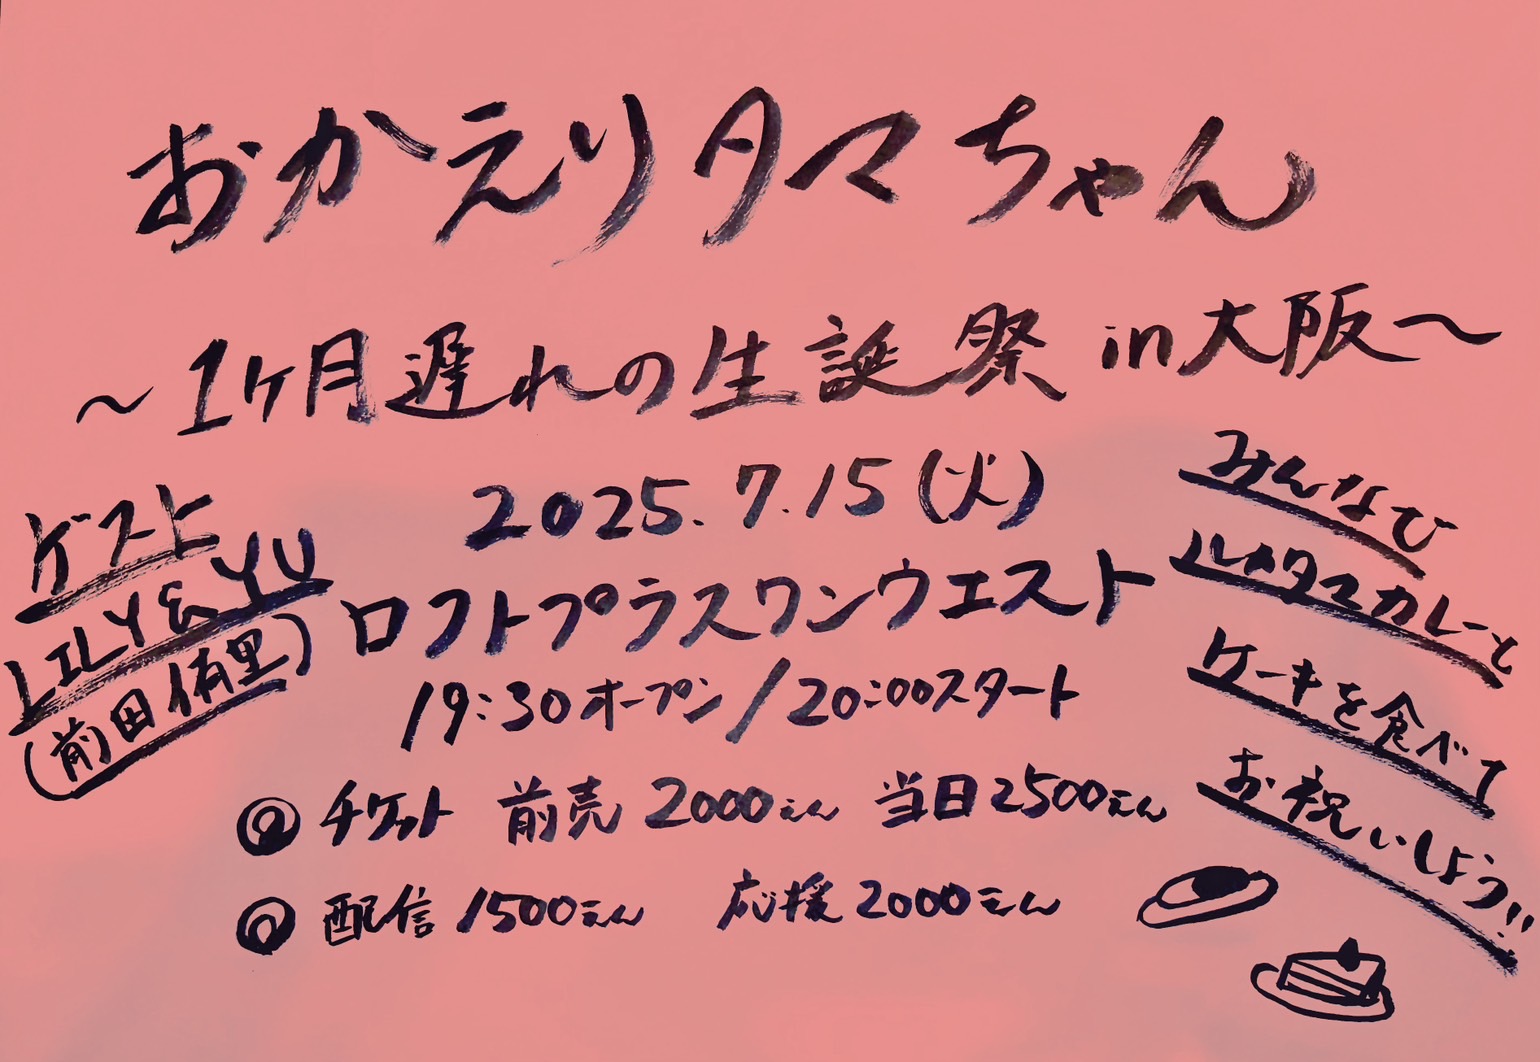 おかえりタマちゃん
〜1ヶ月遅れの生誕祭 in 大阪〜
2025.7.15(火)
ロフトプラスワンウエスト
19:30オープン/20:00スタート
◎チケット 前売 2000えん 当日2500えん
◎配信 1500えん 応援 2000えん
ゲスト
LILY&YU
(前田侑里)
みんなで
ルタマカレーと
ケーキを食べて
お祝いしよう!!